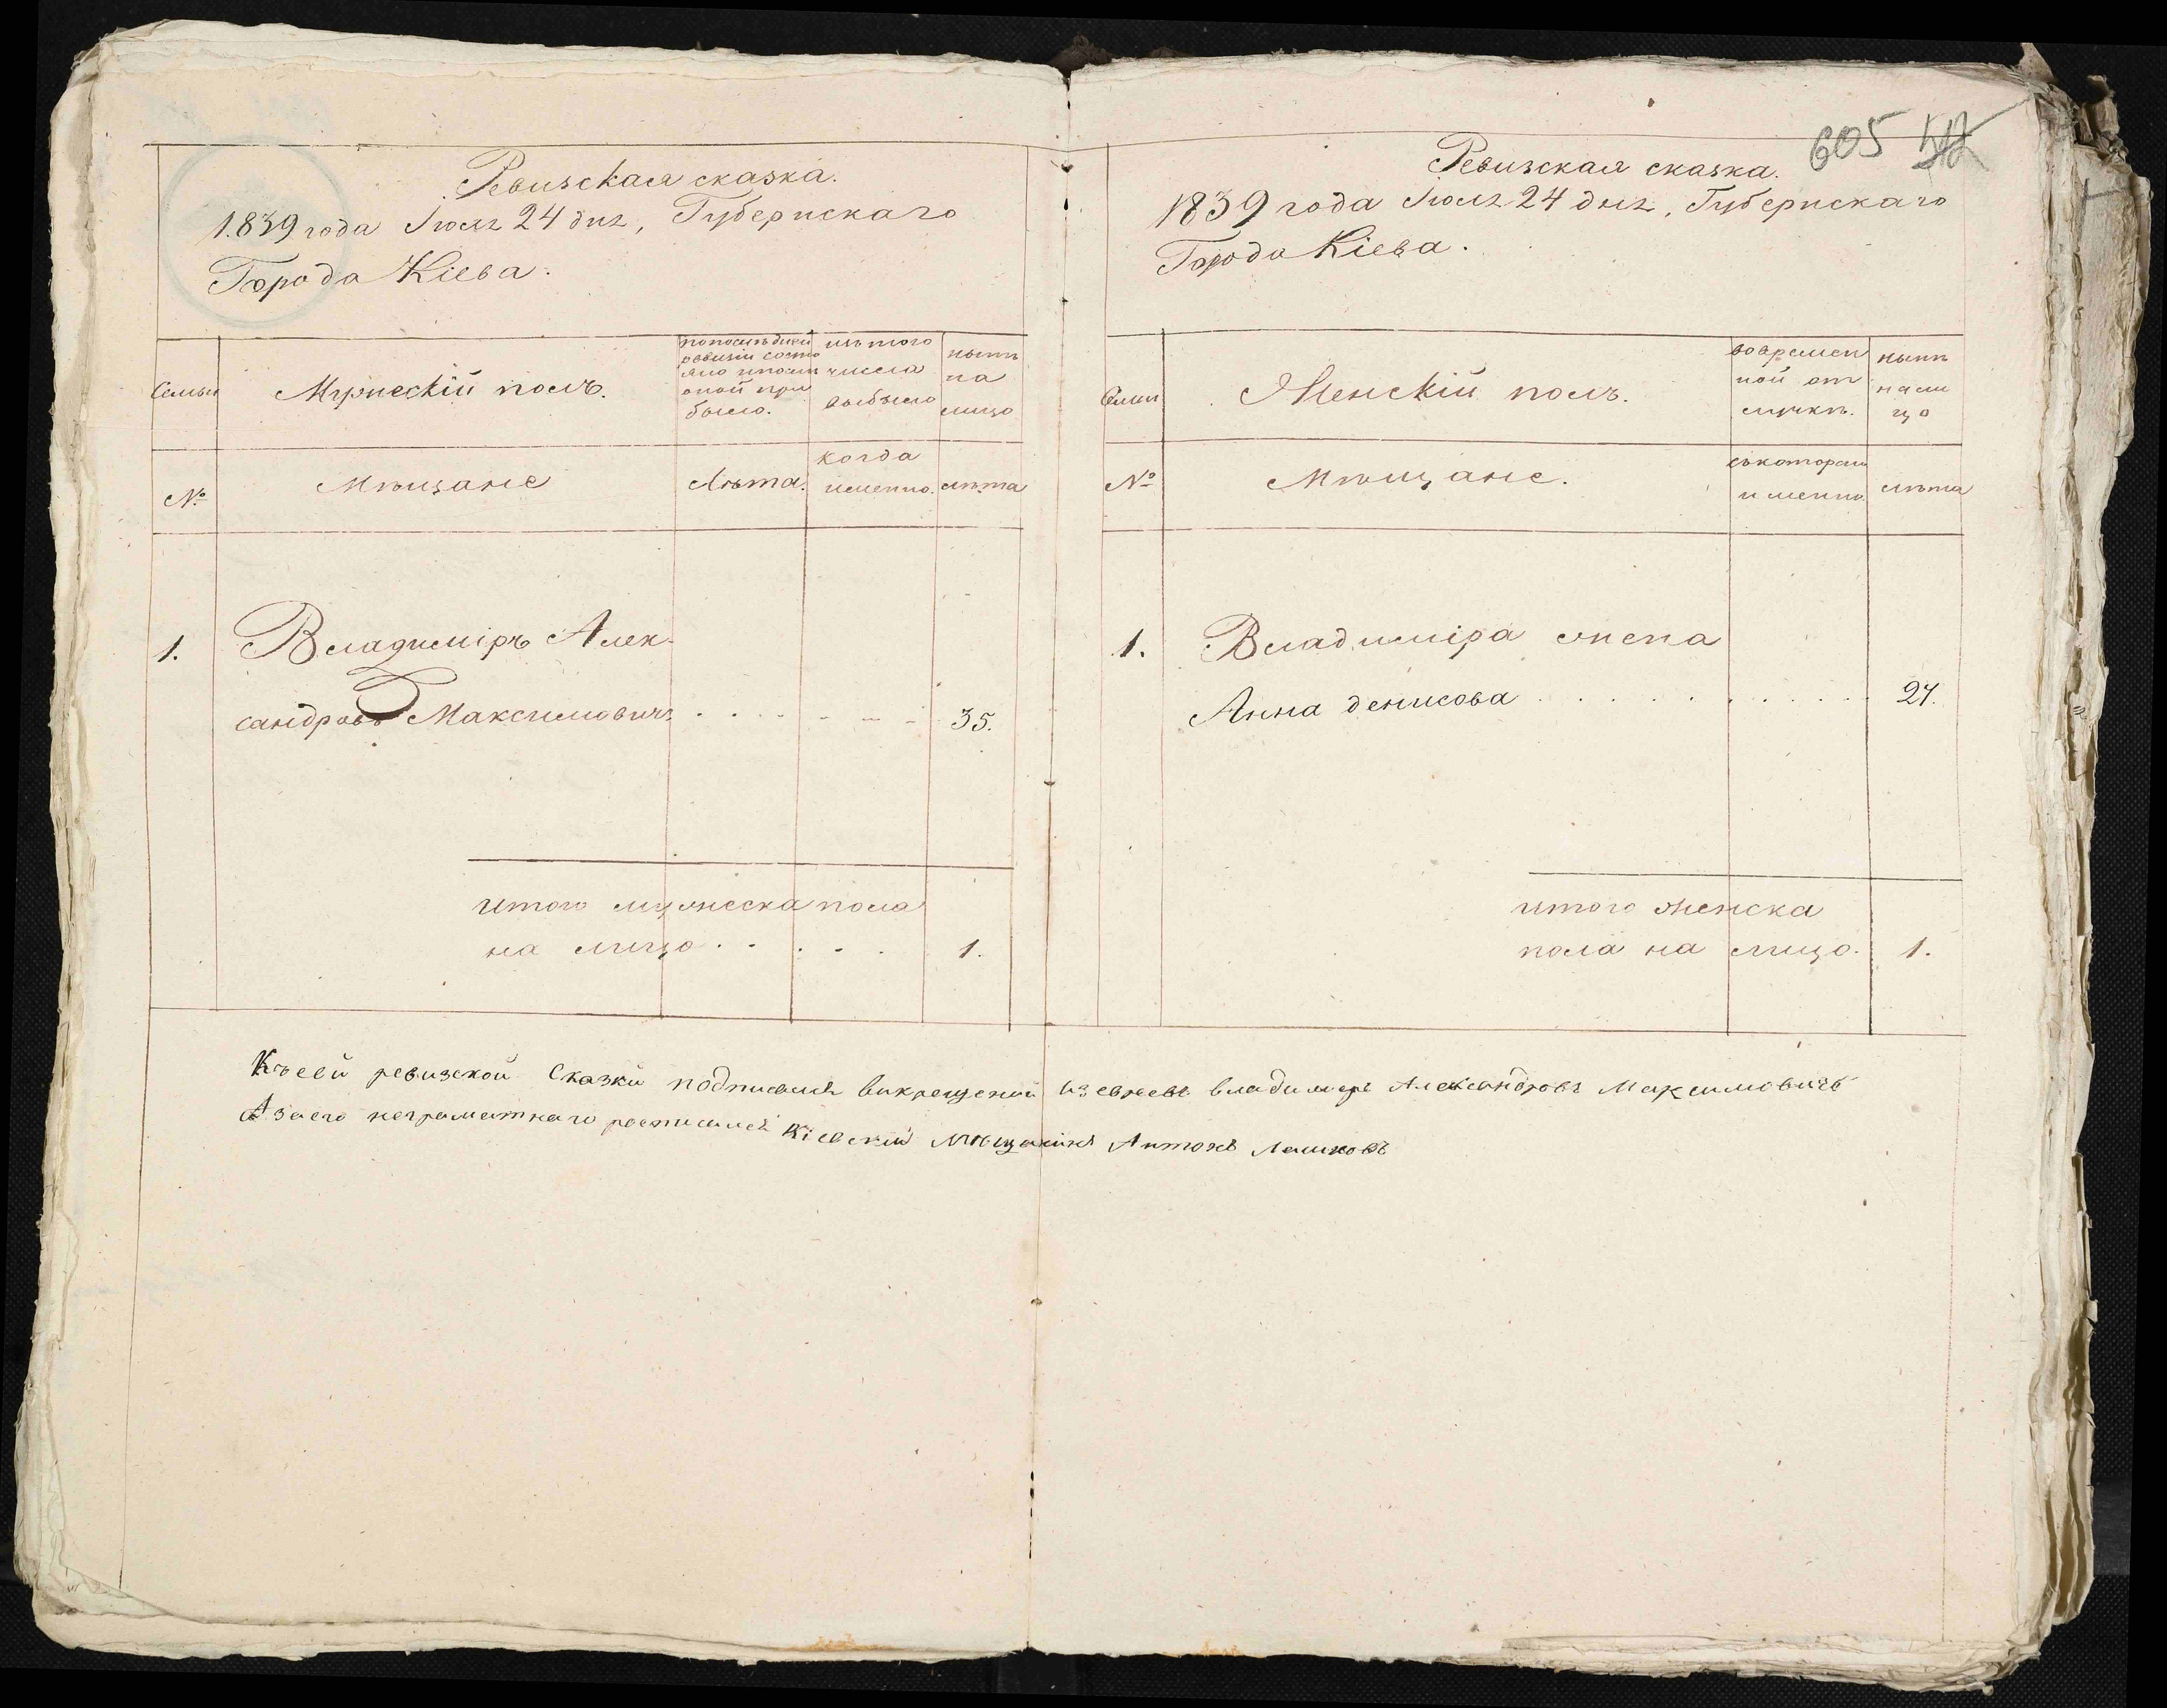 Ревизская сказка.
1839 года Июля 24 дня, Губернскаго
Города Кіева.
Семьи
Мужескій полъ.
по последней
ревизіи состо
яло и после
оной при
было.
изъ того
числа
выбыло
ныне
на
лицо
№
Мѣщане
Лѣта.
когда
именно.
лѣта
1.
Владиміръ Алек-
сандровъ Максимовичъ
35.
итого мужеска пола
на лицо
1.
605
Ревизская сказка.
1839 года Июля 24 дня, Губернскаго
Города Кіева.
Семьи
Женскій полъ.
во времен
ной от
лучкѣ.
нынѣ
на ли
цо
№
Мѣщане.
съ котораго
именно.
лѣта
1.
Владиміра жена
Анна денисова
27.
итого женска
пола на лицо.
1.
Къ сей ревизской Сказки подписался викрещеной из евреевъ владимеръ Александровъ Максимовичъ
А за его неграматнаго росписался Кіевский Мѣщанинъ Антонъ